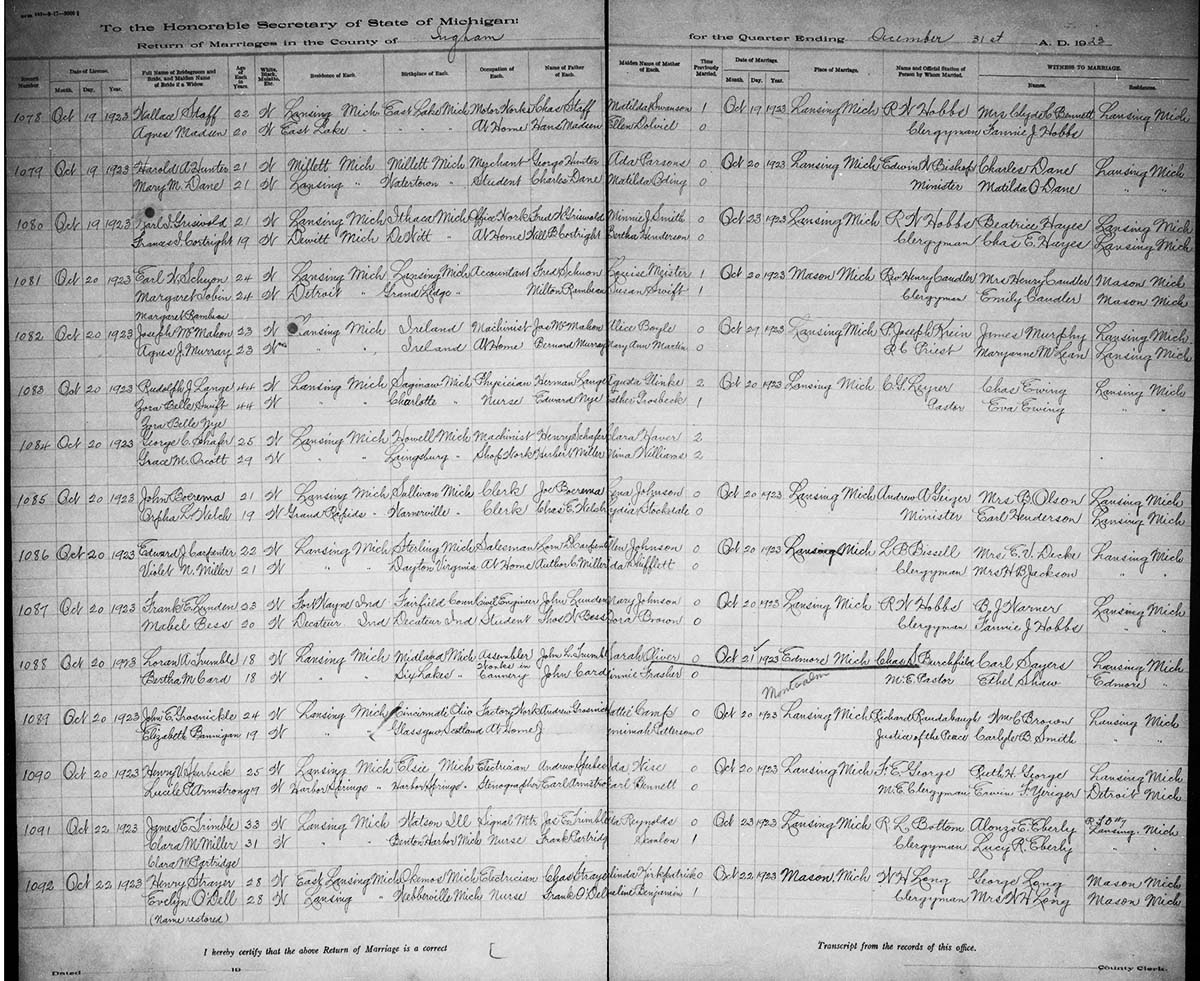 To the Honorable Secretary of State of Michigan:
Return of Marriages in the County of Ingham for the Quarter Ending December 31st A. D. 1923
Record Number Date of License. Month. Day. Year. Full Name of Bridegroom and Bride, and Maiden Name of Bride if a Widow Age of Each in Years White, Black, Mulatto, Etc. Residence of Each. Birthplace of Each. Occupation of Each. Name of Father of Each. Maiden Name of Mother of Each. Times Previously Married. Date of Marriage. Month. Day. Year. Place of Marriage. Name and Official Station of Person by Whom Married. WITNESS TO MARRIAGE. Names. Residences.
1078 Oct 19 1923 Wallace Staff 22 W Lansing Mich East Lake Mich Motor Works Chas Staff Matilda Swanson 1 Oct 19 1923 Lansing Mich R W Hobbs Mrs Clyde C Bennett Lansing Mich
Agnes Madsen 20 W East Lake " " " At Home Hans Madsen Ellen 0 Clergyman Fannie J Hobbs
1079 Oct 19 1923 Harold A Hunter 21 W Millett Mich Millett Mich George Hunter Ada Parsons 0 Oct 20 1923 Lansing Mich Edwin W Bishop Charles Dane Lansing Mich
Mary M. Dane 21 W Lansing " Watertown " Student Charles Dane Matilda 0 Minister Matilda O Dane " "
1080 Oct 19 1923 Earl S Griswold 21 W Lansing Mich Ithaca Mich Office Work Fred W Griswold Minnie J Smith 0 Oct 23 1923 Lansing Mich R W Hobbs Beatrice Hayes Lansing Mich
Frances I Cortright 19 W Dewitt Mich DeWitt " At Home Will B Cortright Bertha Henderson 0 Clergyman Chas E Hayes Lansing Mich
1081 Oct 20 1923 Earl W Schuon 24 W Lansing Mich Lansing Mich Accountant Fred Schuon Louise Meister 1 Oct 20 1923 Mason Mich Rev Henry Caudler Mrs Henry Caudler Mason Mich
Margaret Tobin 24 W Detroit " Grand Ledge " Milton Rambeau Susan Swift 1 Clergyman Emily Caudler Mason Mich
Margaret Rambeau
1082 Oct 20 1923 Joseph McMahon 23 W Lansing Mich Ireland Machinist Jas McMahon Alice Boyle 0 Oct 27 1923 Lansing Mich P. Joseph Krein James Murphy Lansing Mich.
Agnes J. Murray 23 W " " Ireland At Home Bernard Murray Mary Ann Martin 0 R C Priest Maryanne McLean Lansing Mich
1083 Oct 20 1923 Rudolph J Lange 44 W Lansing Mich Saginaw Mich Physician Herman Lange Glinke 2 Oct 20 1923 Lansing Mich C G Chas Ewing Lansing Mich
Zora Belle Swift 44 W " " Charlotte " Nurse Edward Nye Esther Grosbeck 1 Pastor Eva Ewing " "
Zora Belle Nye
1084 Oct 20 1923 George C Shafer 25 W Lansing Mich Howell Mich Machinist Henry Schafer Clara Haver 2
Grace M. Orcott 29 W " " Laingsburg " Shop Work Herbert Miller Nina Williams 2
1085 Oct 20 1923 John Boerema 21 W Lansing Mich Sullivan Mich Clerk Joe Boerema Lena Johnson 0 Oct 20 1923 Lansing Mich Andrew A Geiger Mrs B. Olson Lansing Mich
Orpha L. Welch 19 W Grand Rapids " Warnerville " Clerk Chas E Welch Lydia Stockdale 0 Minister Earl Henderson Lansing Mich
1086 Oct 20 1923 Edward J Carpenter 22 W Lansing Mich Sterling Mich Salesman Carpenter Ellen Johnson 0 Oct 20 1923 Lansing Mich L. B Bissell Mrs E. V. Decke Lansing Mich
Violet N. Miller 21 W " " Dayton Virginia At Home Author C Miller Ida Shifflett 0 Clergyman Mrs H B Jackson " "
1087 Oct 20 1923 Frank E Lunden 23 W Fort Wayne Ind Fairfield Conn Civil Engineer John Lunden Mary Johnson 0 Oct 20 1923 Lansing Mich R W Hobbs B J Warner Lansing Mich
Mabel Bess 20 W Decatur Ind Decateur Ind Student Thos W Bess Dora Brown 0 Clergyman Fannie J Hobbs " "
1088 Oct 20 1923 Loran A Trumble 18 W Lansing Mich Midland Mich Assembler John L Trumble Sarah Oliver 0 Oct 21 1923 Edmore Mich Chas S Burchfild Carl Sayers Lansing Mich
Bertha M Card 18 W " " Six Lakes " Works in Cannery John Card Minnie Frasher 0 Montcalm M.E. Pastor Ethel Shaw Edmore "
1089 Oct 20 1923 John E Grosnickle 24 W Lansing Mich Cincinnati Ohio Factory Work Andrew Grosnickle Hattie Camp 0 Oct 20 1923 Lansing Mich Richard Raudabaugh Wm C Brown Lansing Mich
Elizabeth Bannigan 19 W " " Glasgow Scotland At Home J Jemimah Petterson 0 Justice of the Peace Carlyle B. Smith " "
1090 Oct 20 1923 Henry V Spurbeck 25 W Lansing Mich Elsie Mich Electrician Andrew Spurbeck Ida Wise 0 Oct 20 1923 Lansing Mich F. E. George Ruth H. George Lansing Mich
Lucile P. Armstrong 19 W Harbor Springs " Harbor Springs " Stenographer Earl Armstrong Bennett 0 M.E. Clergyman Erwin F Yeriger Detroit Mich
1091 Oct 22 1923 James E Trimble 33 W Lansing Mich Watson Ill Signal Mtr Jas E Trimble Reynolds 0 Oct 23 1923 Lansing Mich R L Bottom Alonzo E. Eberly R F D #7 Lansing Mich
Clara M Miller 31 W " " Benton Harbor Mich Nurse Frank Partridge Scanlon 1 Clergyman Lucy R. Eberly " "
Clara M Partridge
1092 Oct 22 1923 Henry Strayer 28 W East Lansing Mich Okemos Mich Electrician Chas Strayer Malinda Kirkpatrick 0 Oct 22 1923 Mason, Mich W H Long George Long Mason Mich
Evelyn O'Dell 28 W Lansing " Webberville Mich Nurse Frank O'Dell Benjamin 1 Clergyman Mrs W H Long Mason Mich
(Name restored)
I hereby certify that the above Return of Marriage is a correct Transcript from the records of this office.
Dated 19 County Clerk.